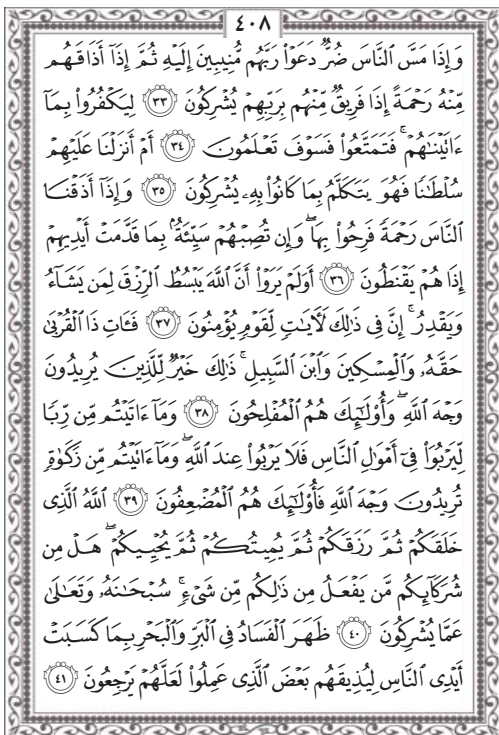 ٤٠٨
وَإِذَا مَسَّ ٱلنَّاسَ ضُرٌّ دَعَوْا۟ رَبَّهُم مُّنِيبِينَ إِلَيْهِ ثُمَّ إِذَآ أَذَاقَهُم
مِّنْهُ رَحْمَةً إِذَا فَرِيقٌ مِّنْهُم بِرَبِّهِمْ يُشْرِكُونَ ٣٣ لِيَكْفُرُوا۟ بِمَآ
ءَاتَيْنَٰهُمْ ۚ فَتَمَتَّعُوا۟ فَسَوْفَ تَعْلَمُونَ ٣٤ أَمْ أَنزَلْنَا عَلَيْهِمْ
سُلْطَٰنًا فَهُوَ يَتَكَلَّمُ بِمَا كَانُوا۟ بِهِۦ يُشْرِكُونَ ٣٥ وَإِذَآ أَذَقْنَا
ٱلنَّاسَ رَحْمَةً فَرِحُوا۟ بِهَا ۖ وَإِن تُصِبْهُمْ سَيِّئَةٌۢ بِمَا قَدَّمَتْ أَيْدِيهِمْ
إِذَا هُمْ يَقْنَطُونَ ٣٦ أَوَلَمْ يَرَوْا۟ أَنَّ ٱللَّهَ يَبْسُطُ ٱلرِّزْقَ لِمَن يَشَآءُ
وَيَقْدِرُ ۚ إِنَّ فِى ذَٰلِكَ لَءَايَٰتٍ لِّقَوْمٍ يُؤْمِنُونَ ٣٧ فَـَٔاتِ ذَا ٱلْقُرْبَىٰ
حَقَّهُۥ وَٱلْمِسْكِينَ وَٱبْنَ ٱلسَّبِيلِ ۚ ذَٰلِكَ خَيْرٌ لِّلَّذِينَ يُرِيدُونَ
وَجْهَ ٱللَّهِ ۖ وَأُو۟لَٰٓئِكَ هُمُ ٱلْمُفْلِحُونَ ٣٨ وَمَآ ءَاتَيْتُم مِّن رِّبًا
لِّيَرْبُوَا۟ فِىٓ أَمْوَٰلِ ٱلنَّاسِ فَلَا يَرْبُوا۟ عِندَ ٱللَّهِ ۖ وَمَآ ءَاتَيْتُم مِّن زَكَوٰةٍ
تُرِيدُونَ وَجْهَ ٱللَّهِ فَأُو۟لَٰٓئِكَ هُمُ ٱلْمُضْعِفُونَ ٣٩ ٱللَّهُ ٱلَّذِى
خَلَقَكُمْ ثُمَّ رَزَقَكُمْ ثُمَّ يُمِيتُكُمْ ثُمَّ يُحْيِيكُمْ ۖ هَلْ مِن
شُرَكَآئِكُم مَّن يَفْعَلُ مِن ذَٰلِكُم مِّن شَىْءٍ ۚ سُبْحَٰنَهُۥ وَتَعَٰلَىٰ
عَمَّا يُشْرِكُونَ ٤٠ ظَهَرَ ٱلْفَسَادُ فِى ٱلْبَرِّ وَٱلْبَحْرِ بِمَا كَسَبَتْ
أَيْدِى ٱلنَّاسِ لِيُذِيقَهُم بَعْضَ ٱلَّذِى عَمِلُوا۟ لَعَلَّهُمْ يَرْجِعُونَ ٤١